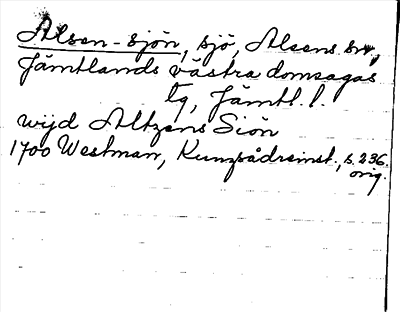 Alsen-sjön, sjö, Alsens sn,
Jämtlands västra domsagas
tg, Jämtl. l.
wijd Altzens Siön
1700 Westman, Kunzådreinst., s. 236.
orig.